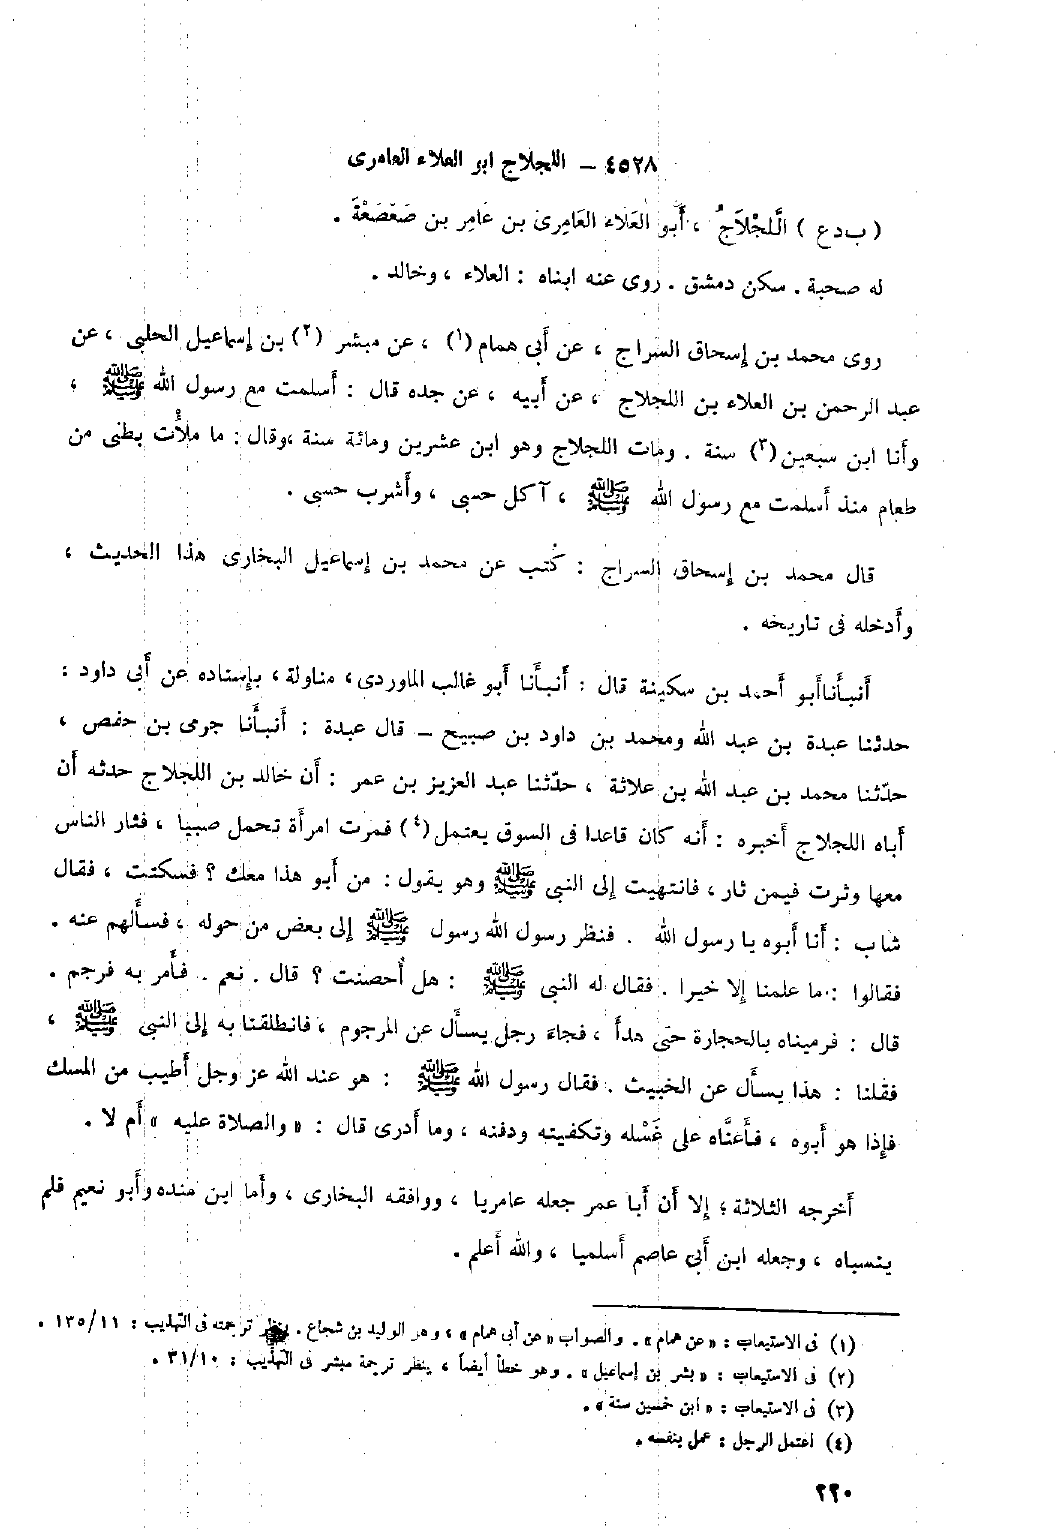 ٤٥٢٨ – اللجلاج ابو العلاء العامرى
( ب د ع ) الَّلجْلَاجُ ، أَبو العَلَاء العَامِرىّ بن عَامِر بن صَعْصَعْةَ .
له صحبة . سكن دمشق . روى عنه ابناه : العلاء ، وخالد .
روى محمد بن إسحاق السراج ، عن أبى همام (١) ، عن مبشر (٢) بن إسماعيل الحلبى ، عن
عبد الرحمن بن العلاء بن اللجلاج ، عن أبيه ، عن جده قال : أسلمت مع رسول الله ﷺ ،
وأنا ابن سبعين (٣) سنة . ومات اللجلاج وهو ابن عشرين ومائة سنة ،وقال : ما ملأت بطنى من
طعام منذ أسلمت مع رسول الله ﷺ ، آكل حسبى ، وأشرب حسبى .
قال محمد بن إسحاق السراج : كُتب عن محمد بن إسماعيل البخارى هذا الحديث ،
وأدخله فى تاريخه .
أنبأنا أبو أحمد بن سكينة قال : أنبأنا أبو غالب الماوردى ، مناولة ، بإسناده عن أبى داود :
حدثنا عبدة بن عبد الله ومحمد بن داود بن صبيح – قال عبدة : أنبأنا جرمى بن حفص ،
حدّثنا محمد بن عبد الله بن علاثة ، حدّثنا عبد العزيز بن عمر : أن خالد بن اللجلاج حدثه أن
أباه اللجلاج أخبره : أنه كان قاعدا فى السوق يعتمل (٤) فمرت امرأة تحمل صبيا ، فثار الناس
معها وثرت فيمن ثار ، فانتهيت إلى النبى ﷺ وهو يقول : من أبو هذا معك ؟ فسكتت ، فقال
شاب : أنا أبوه يا رسول الله . فنظر رسول الله رسول ﷺ إلى بعض من حوله ، فسألهم عنه .
فقالوا : ما علمنا إلا خيرا . فقال له النبى ﷺ : هل أُحصنت ؟ قال . نعم . فأمر به فرجم .
قال : فرميناه بالحجارة حتى هدأ ، فجاء رجل يسأل عن المرجوم ، فانطلقنا به إلى النبى ﷺ ،
فقلنا : هذا يسأل عن الخبيث . فقال رسول الله ﷺ : هو عند الله عز وجل أطيب من المسك
فإذا هو أبوه ، فأعنَّاه على غَسْله وتكفينه ودفنه ، وما أدرى قال : « والصلاة عليه » أم لا .
أخرجه الثلاثة ؛ إلا أن أبا عمر جعله عامريا ، ووافقه البخارى ، وأما ابن منده وأبو نعيم فلم
ينسباه ، وجعله ابن أبى عاصم أسلميا ، والله أعلم .
(١) فى الاستيعاب : « عن همام » . والصواب « عن أبى همام » ، وهو الوليد بن شجاع . ينظر ترجمته فى التهذيب : ١١/ ١٣٥ .
(٢) فى الاستيعاب : « بشر بن إسماعيل » . وهو خطأ أيضاً ، ينظر ترجمة مبشر فى التهذيب : ١٠/ ٣١ .
(٣) فى الاستيعاب : « ابن خمسين سنة » .
(٤) اعتمل الرجل : عمل بنفسه .
٢٢٠